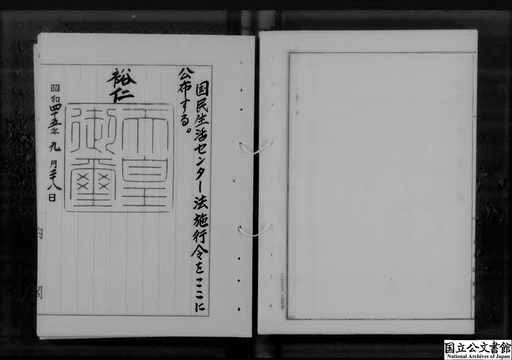 国民生活センター法施行令をここに
公布する。
裕仁
天皇
御璽
昭和四十五年九月二十八日
内閣
国立公文書館
National Archives of Japan